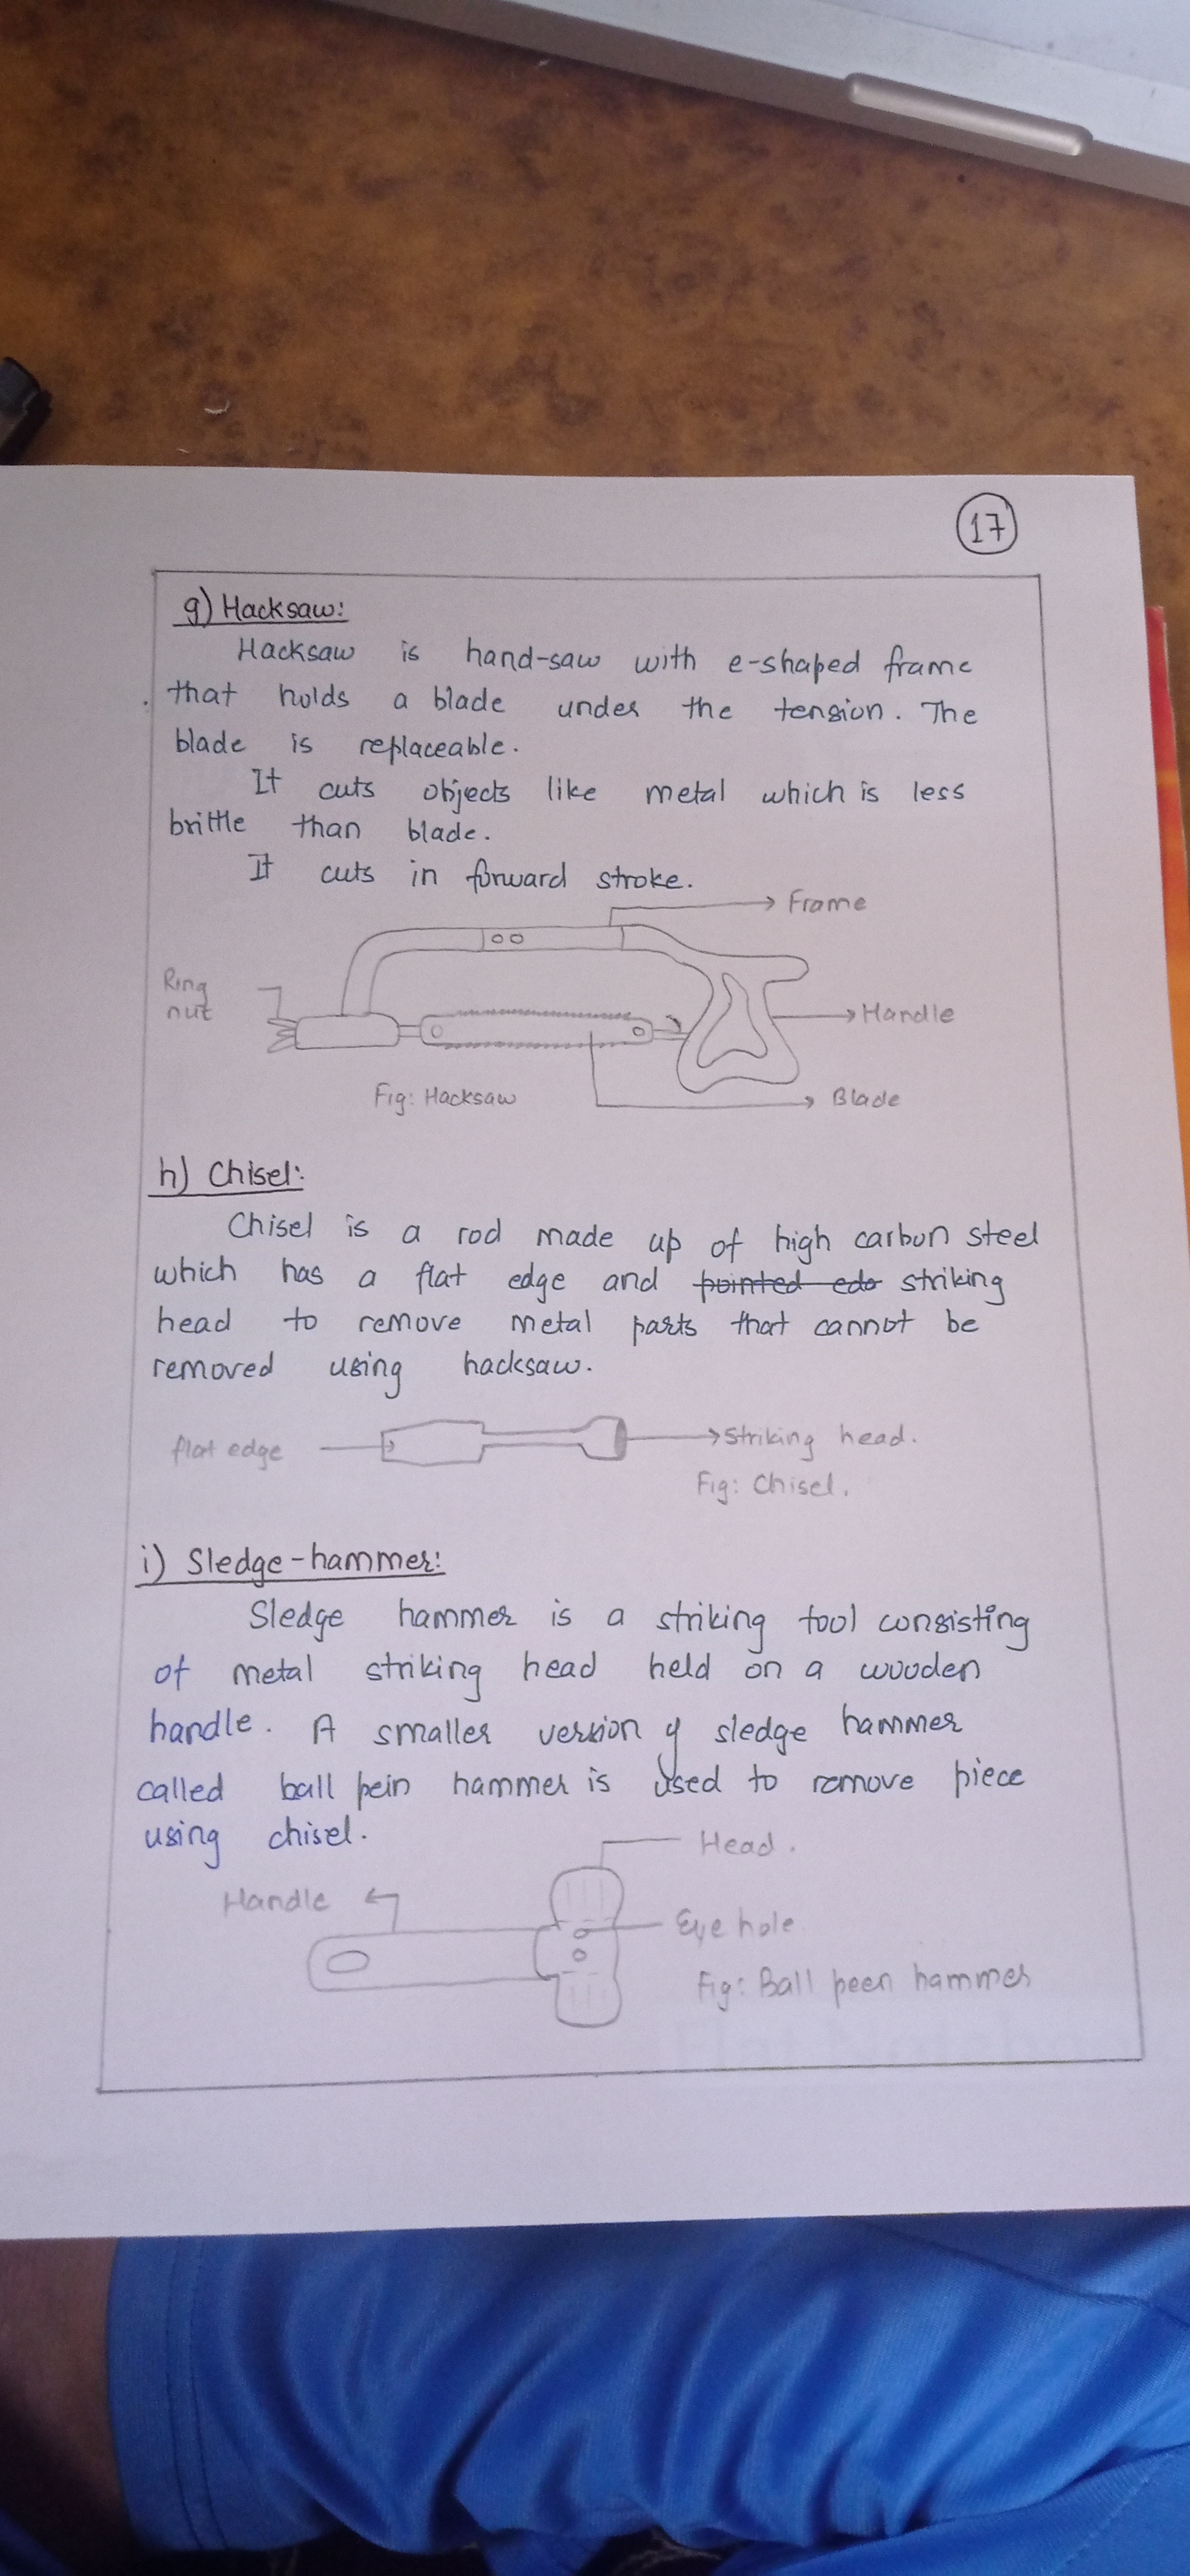 17
g) Hacksaw:
Hacksaw is hand-saw with e-shaped frame
that holds a blade under the tension. The
blade is replaceable.
It cuts objects like metal which is less
brittle than blade.
It cuts in forward stroke.
Frame
Ring
nut
Handle
Fig: Hacksaw
Blade
h) Chisel:
Chisel is a rod made up of high carbon steel
which has a flat edge and pointed edo striking
head to remove metal parts that cannot be
removed using hacksaw.
flat edge
Striking head.
Fig: Chisel.
i) Sledge-hammer:
Sledge hammer is a striking tool consisting
of metal striking head held on a wooden
handle. A smaller version of sledge hammer
called ball pein hammer is used to remove piece
using chisel.
Head.
Handle
Eye hole
Fig: Ball peen hammer